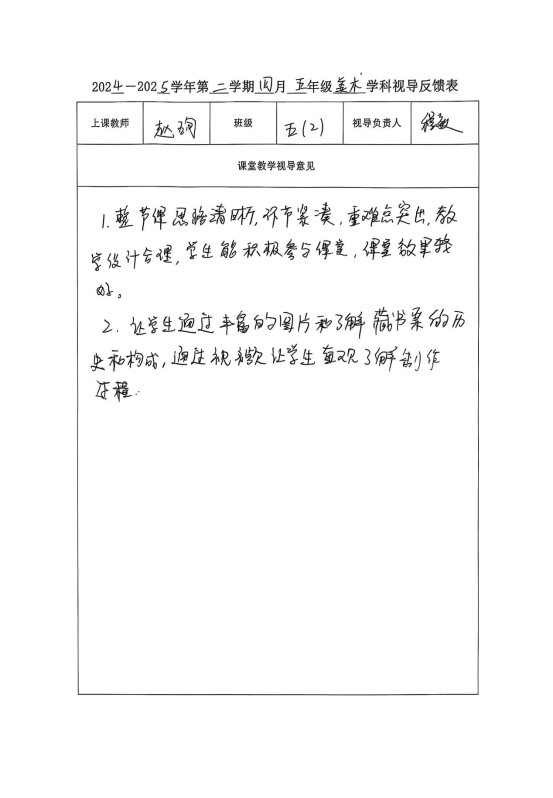 2024-2025学年第二学期四月五年级美术学科视导反馈表
上课教师 赵 班级 五(2) 视导负责人 程敏
课堂教学视导意见
1. 整节课思路清晰,环节紧凑,重难点突出,教
学设计合理,学生能积极参与课堂,课堂效果较
好。
2. 让学生通过丰富的图片和了解藏书票的历
史和构成,通过视频让学生直观了解制作
过程.